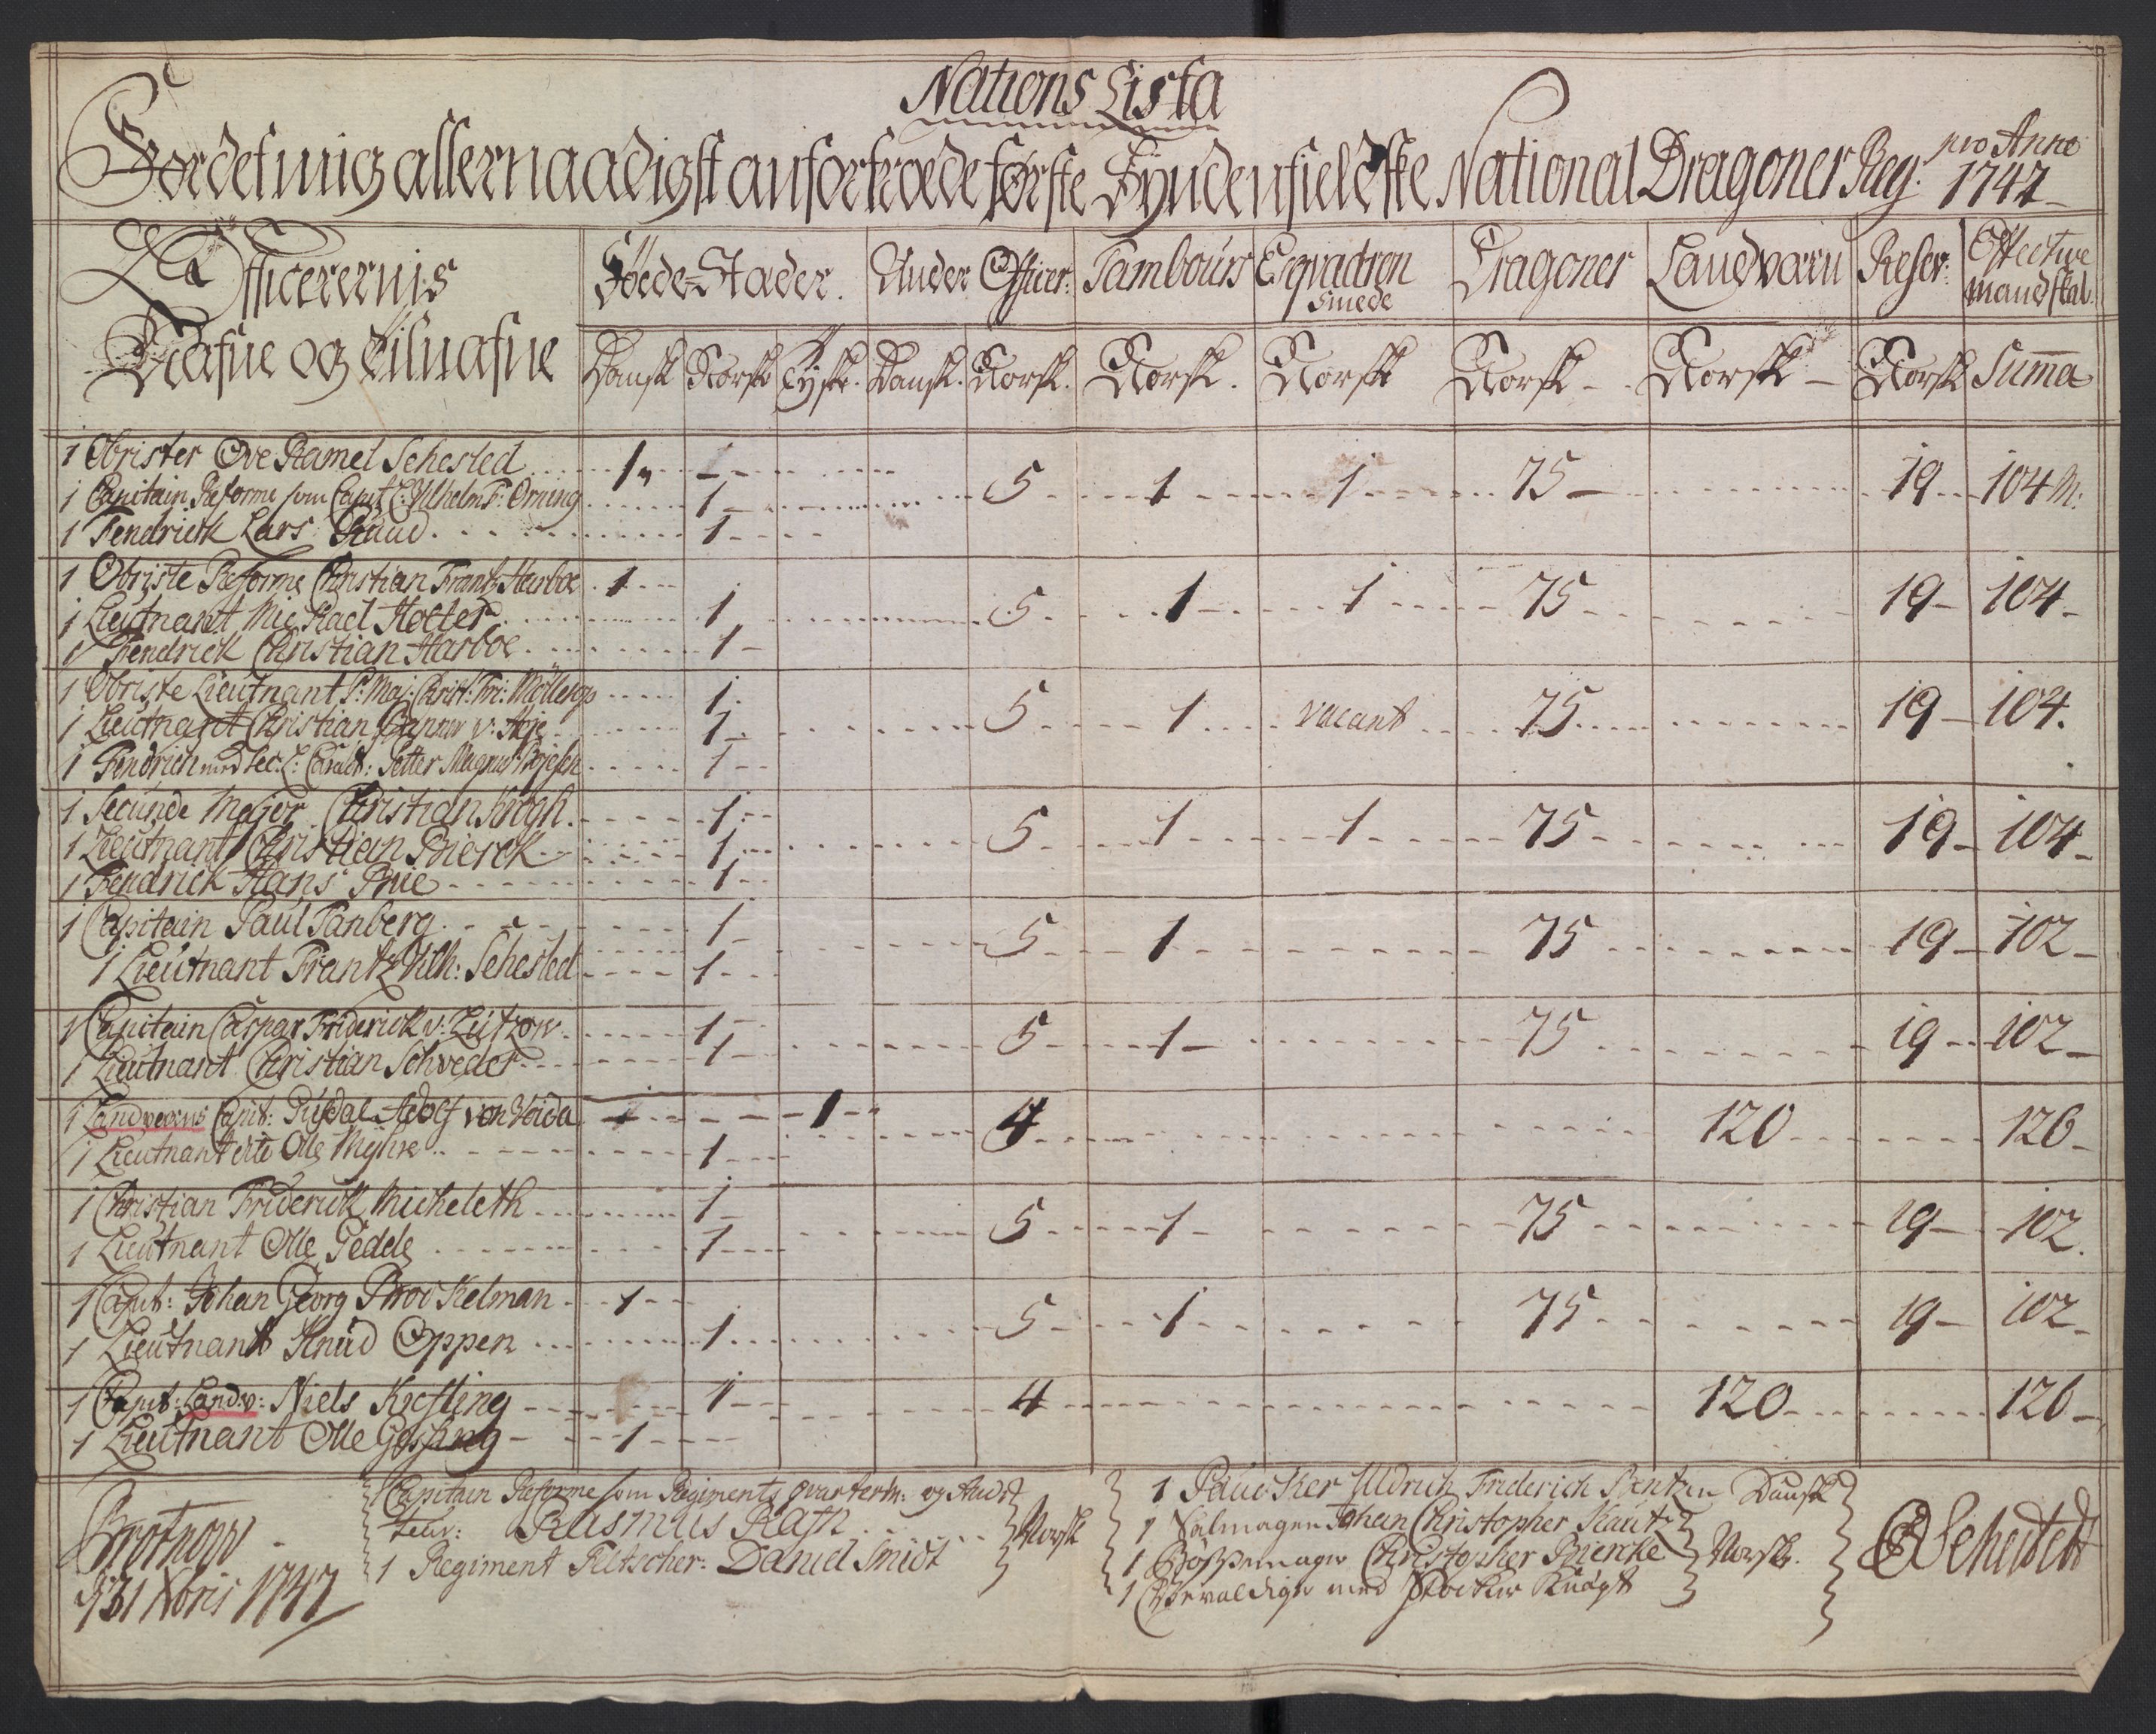 Nations Lista
For det mig allernaadigst anfortroede første Syndenfieldske National Dragoner Reg: pro Anno 1747
Officerernis Nafne og Tilnafne
Føede-Stader. Under Officer: Tambours Esqvadron Smede Dragoner Landværn Reser: Effective mandskab
Dansk Norsk Tyske. Dansk. Norsk. Norsk. Norsk Norsk - Norsk - Norsk Summa
1 Obrister Ove Ramel Sehested 1
1 Capitain Reforme som Capit C: Wilhelm F: Orning 1 5 1 1 75 19 104 M:
1 Fendrick Lars Ruud 1
1 Obriste Reforme Christian Frantz Harboe 1
1 Lieutnant Mickael Holter 1 5 1 1 75 19 104
1 Fendrick Christian Harboe 1
1 Obriste Lieutnant P: Maj: Christ: Fri: 1
1 Lieutnant Christian v: 1 5 1 vacant 75 19 104.
1 Fendrich med Sec: L: Caract: Petter Magnus 1
1 Secunde Major Christian Krogh 1
1 Lieutnant Christian Bierck 1 5 1 1 75 19 104
1 Fendrick Hans 1
1 Capitain Paul Tanberg 1 5 1 75 19 102
1 Lieutnant Frantz Vilh: Sehested 1
1 Capitain Caspar Friderick v: Lützow 1 5 1 75 19 102
1 Lieutnant Christian Schweder 1
1 Landværns Capit: Adolf von 1 4 120 126
1 Lieutnant dito Olle Myhre 1
1 Christian Friderick Micheleth 1 5 1 75 19 102.
1 Lieutnant Olle Gedde 1
1 Capit: Johan Georg Brockelman 1 5 1 75 19 102
1 Lieutnant Knud Oppen 1
1 Capit: Landv: Niels Kiesling 1 4 120 126
1 Lieutnant Olle 1
Capitain Reforme som Regiments qvarterm: og Audi
teur: Rasmus Rafn Norsk
1 Regiment Feltscher: Daniel Smidt
1 Paucker Uldrich Friderich Dansk
1 Salmager Johan Christopher Kautz
1 Bøssemager Christopher Biercke Norsk.
1 Gevaldiger med Stocker Knægt
31 Xbris 1747
O R Sehested